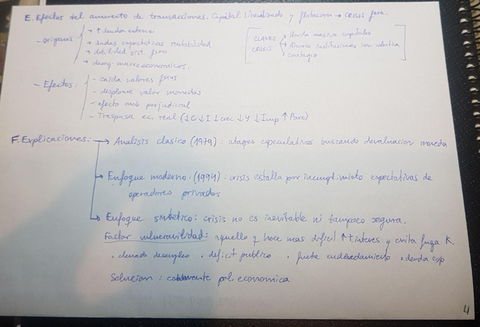 E. Efectos del aumento de transacciones. Capital liberalizado y flotacion → CRISIS fras.
- origenes
• ↑ deuda externa
• malas expectativas rentabilidad
• debilidad sist. fro
• deseq. macroeconomicos.
CLAVES CRISIS
→ Huida masiva capitales
→ Contagio
- Efectos:
- caida valores fros
- desplome valor monedas
- efecto perjudicial
- Traspasa ec. real (↓C ↓I ↓ ↓Y ↓Imp ↑Paro)
F. Explicaciones:
→ Analisis clasico (1979): ataques especulativos buscando devaluacion moneda
→ Enfoque moderno (1994): crisis estalla por incumplimiento expectativas de
operadores privados
→ Enfoque sintetico: crisis no es inevitable ni tampoco segura.
Factor vulnerabilidad: aquello q hace mas dificil ↑ t interes y evita fuga K.
• elevado desempleo • deficit publico • fuerte endeudamiento • deuda c/p
Solucion: poli economica
4